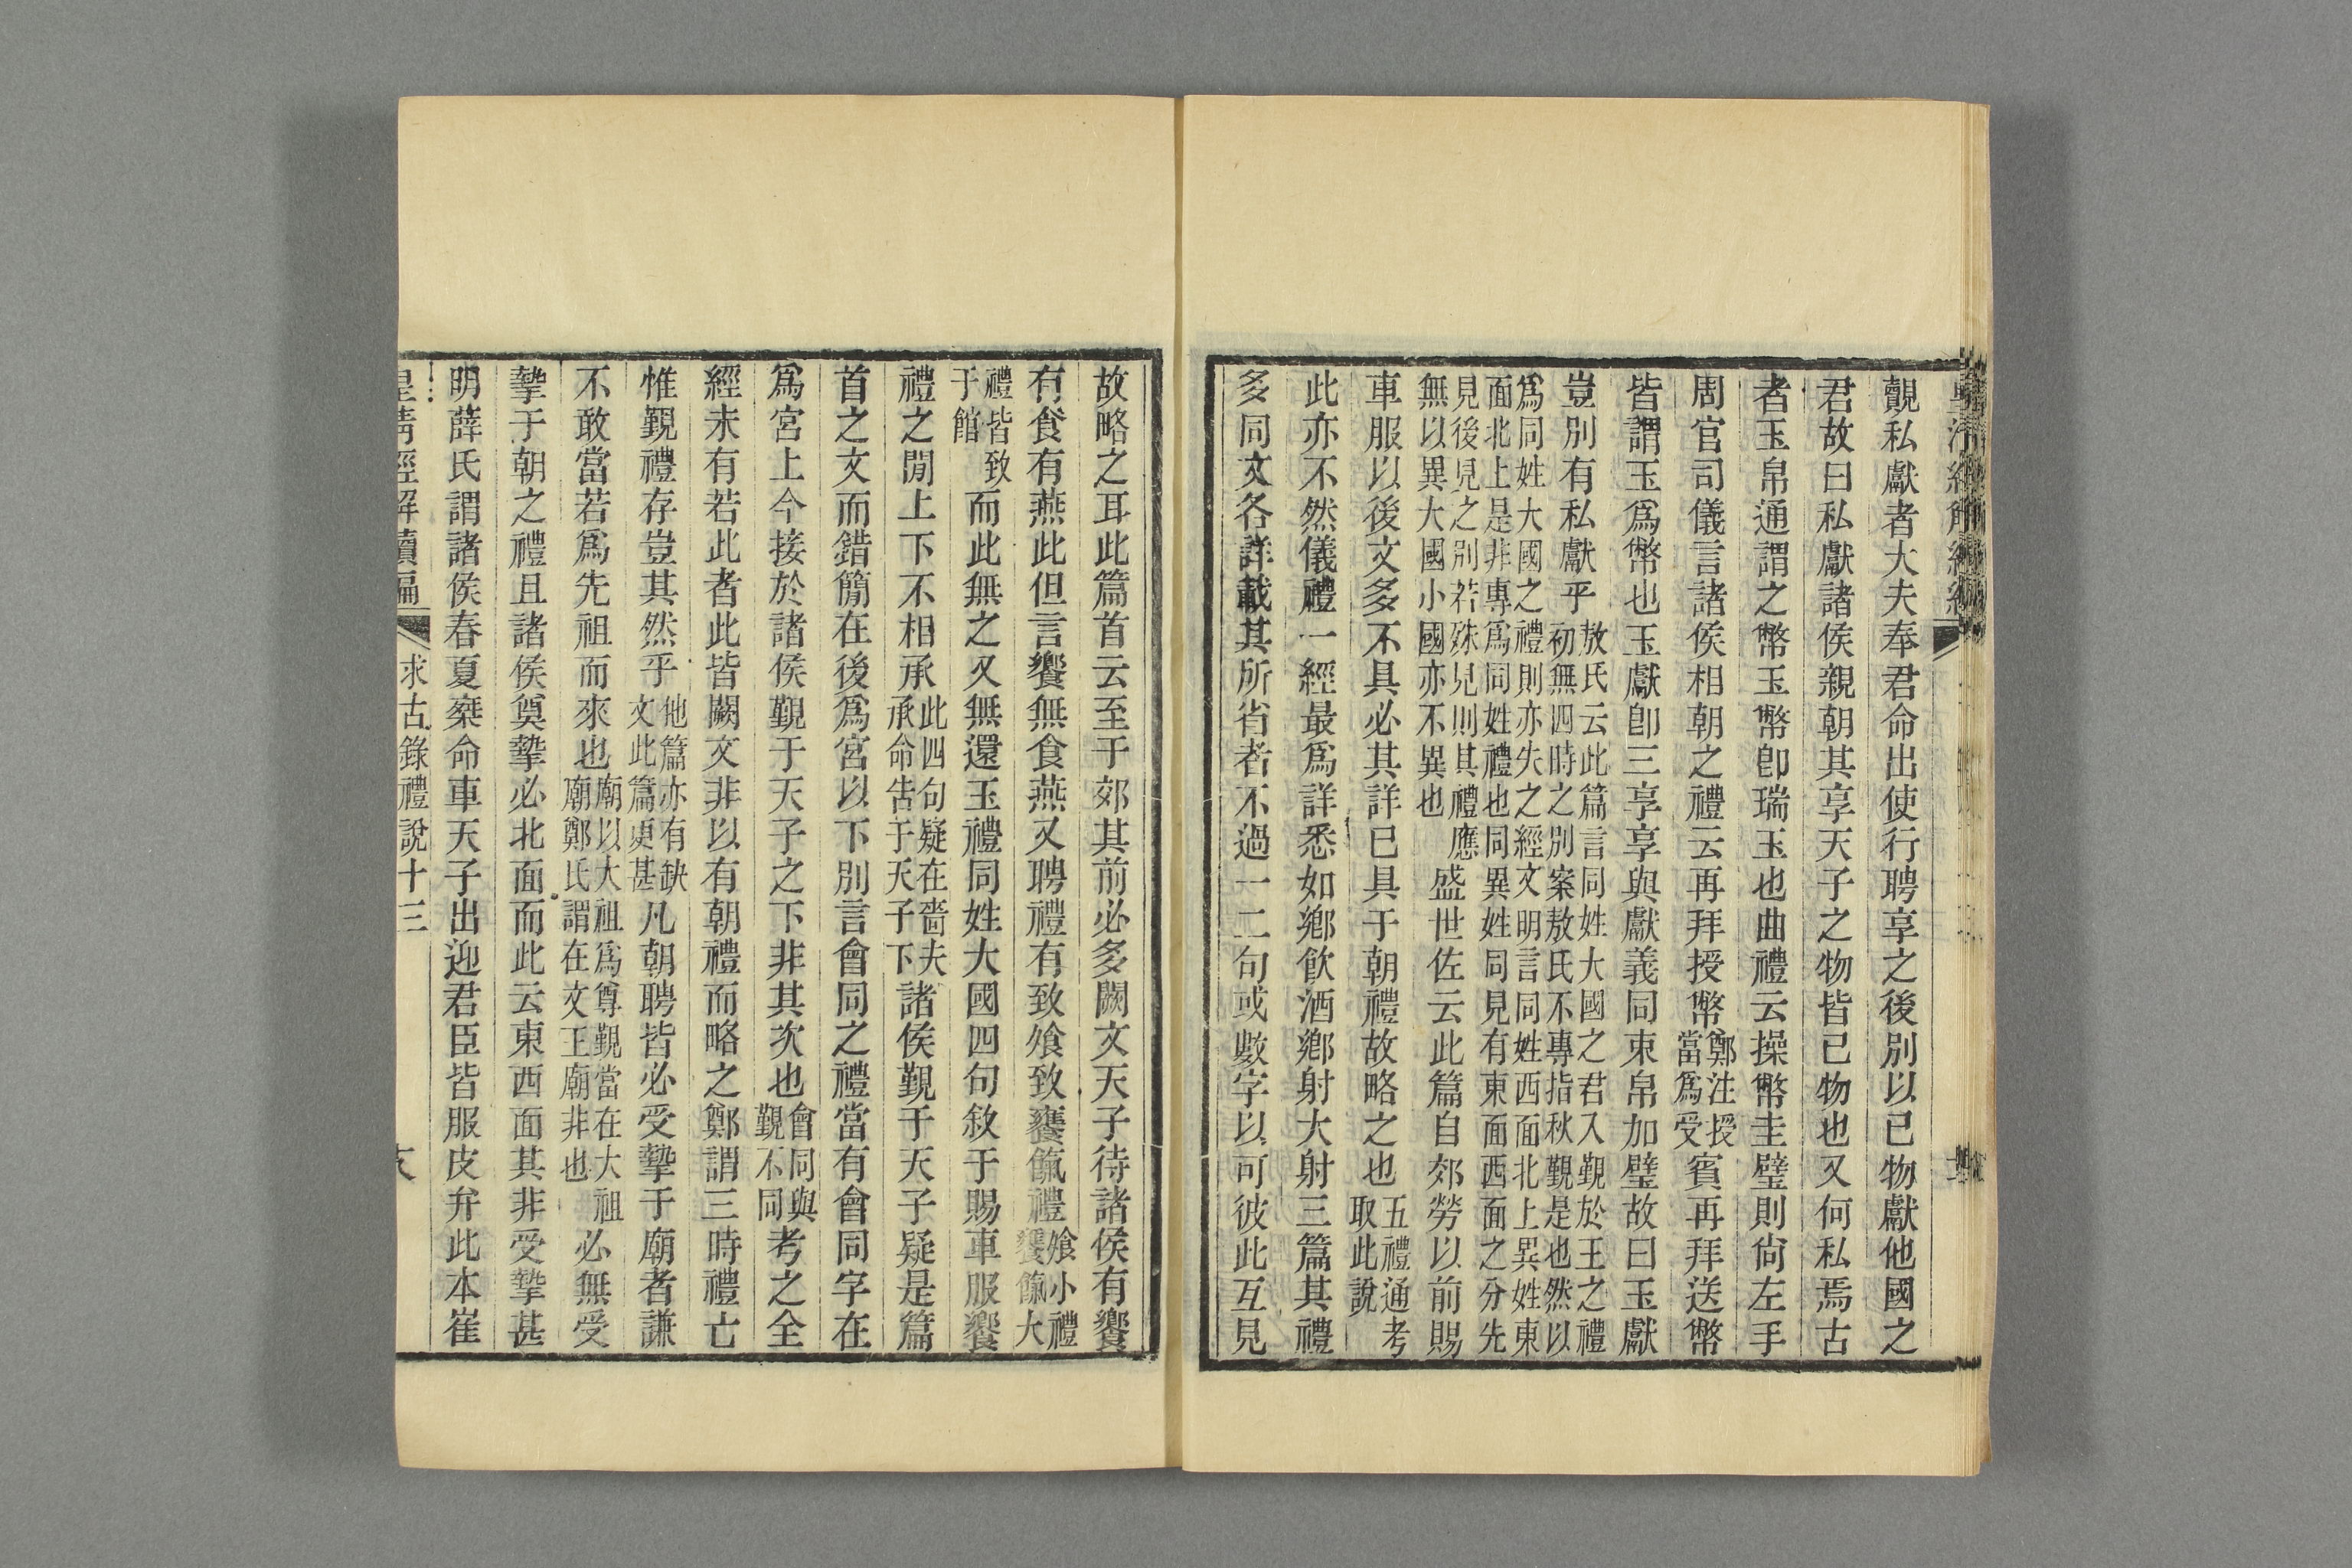 覿私獻者大夫奉君命出使行聘享之後別以己物獻他國之
君故曰私獻諸侯親朝其享天子之物皆已物也又何私焉古
者玉帛通謂之幣玉幣卽瑞玉也曲禮云操幣圭璧則尙左手
周官司儀言諸侯相朝之禮云再拜授幣鄭注授當爲受賓再拜送幣
皆謂玉爲幣也玉獻卽三享享與獻義同束帛加璧故曰玉獻
豈別有私獻乎敖氏云此篇言同姓大國之君入覲於王之禮初無四時之別案敖氏不專指秋覲是也然以
爲同姓大國之禮則亦失之經文明言同姓西面北上異姓東面北上是非專爲同姓禮也同異姓同見有東面西面之分先
見後見之別若殊見則其禮應無以異大國小國亦不異也盛世佐云此篇自郊勞以前賜
車服以後文多不具必其詳已具于朝禮故略之也五禮通考取此說
此亦不然儀禮一經最爲詳悉如鄕飮酒鄕射大射三篇其禮
多同文各詳載其所省者不過一二句或數字以可彼此互見
故略之耳此篇首云至于郊其前必多闕文天子待諸侯有饗
有食有燕此但言饗無食燕又聘禮有致飧致饔餼禮飧小禮饔餼大
禮皆致于館而此無之又無還玉禮同姓大國四句敘于賜車服饗
禮之閒上下不相承此四句疑在嗇夫承命告于天子下諸侯覲于天子疑是篇
首之文而錯簡在後爲宮以下別言會同之禮當有會同字在
爲宮上今接於諸侯覲于天子之下非其次也會同與覲不同考之全
經未有若此者此皆闕文非以有朝禮而略之鄭謂三時禮亡
惟覲禮存豈其然乎他篇亦有缺文此篇更甚凡朝聘皆必受摯于廟者謙
不敢當若爲先祖而來也廟以大祖爲尊覲當在大祖廟鄭氏謂在文王廟非也必無受
摯于朝之禮且諸侯奠摯必北面而此云東西面其非受摯甚
明薛氏謂諸侯春夏稾命車天子出迎君臣皆服皮弁此本崔
皇清經解續編 求古錄禮說十三